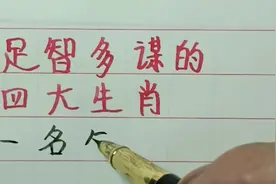 足智多谋的
四大生肖
一名